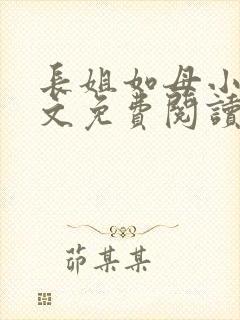 長姐如母小
文免費閱讀
茆某某